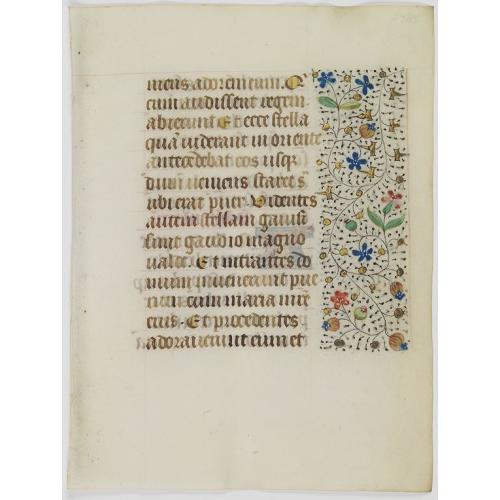 niens adorem eum. Q
cum audissent regem
abierunt Et ecce stella
quā viderant in oriente
antecedebat eos usq
dum veniens staret s
ubi erat puer Videntes
autem stellam gavisi
sunt gaudio magno
valde. Et intrantes do
mum invenerunt pue
rum cum maria mrē
eius. Et procedentes
adoraverunt eum et